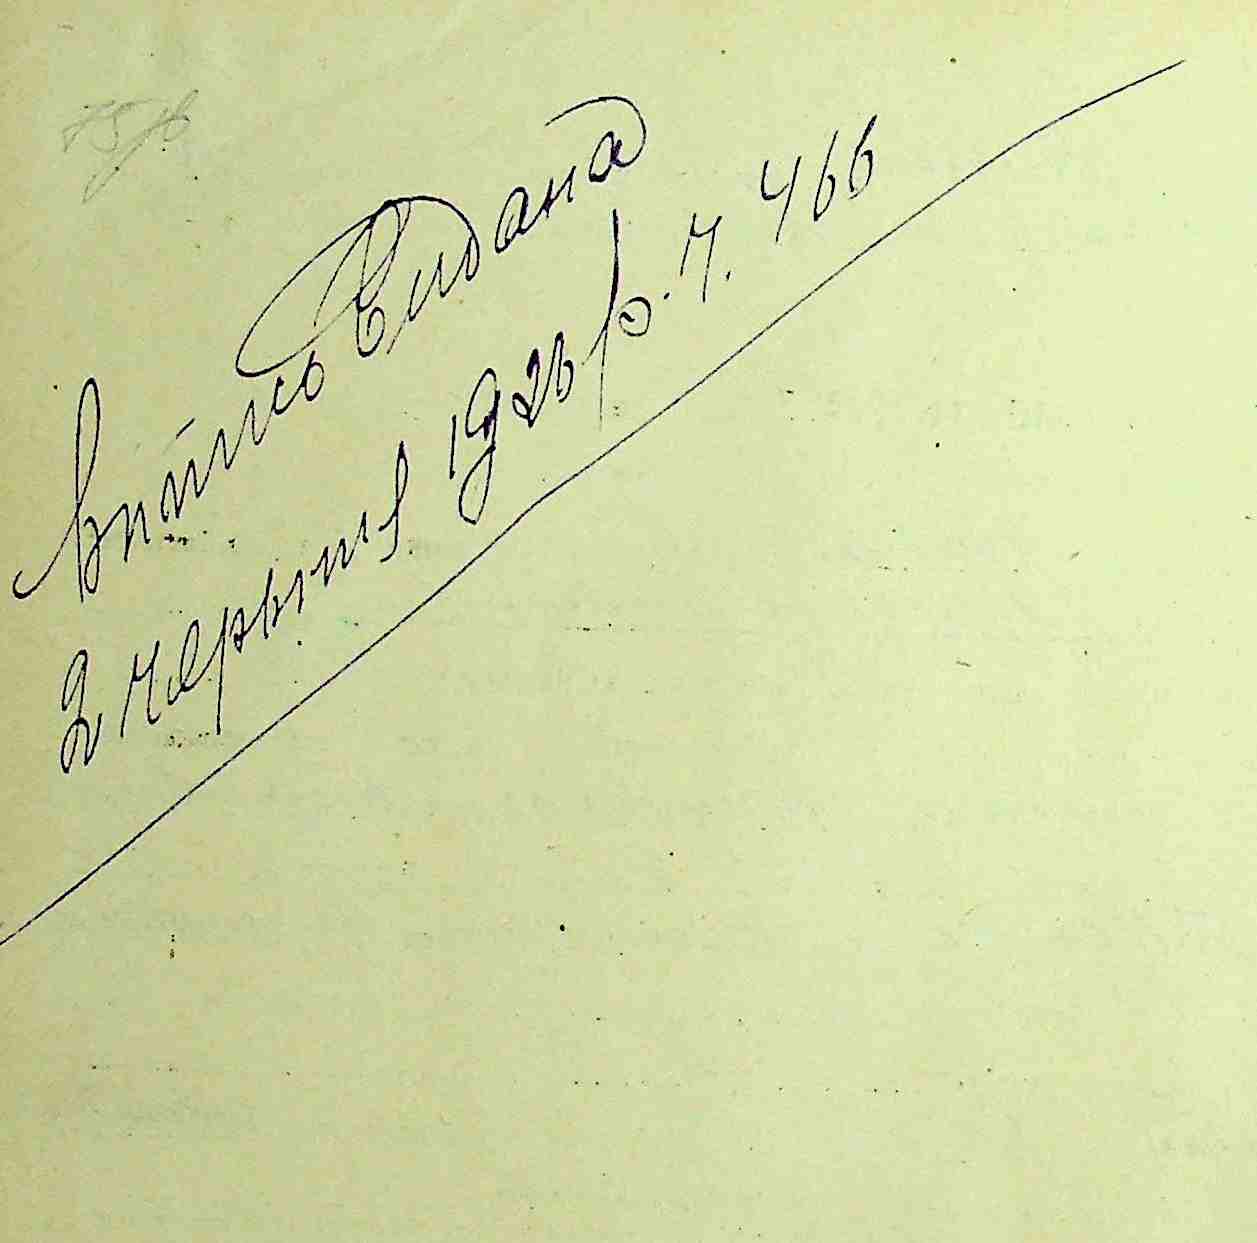 Випись видана
2 червня 1926 р. ч. 466